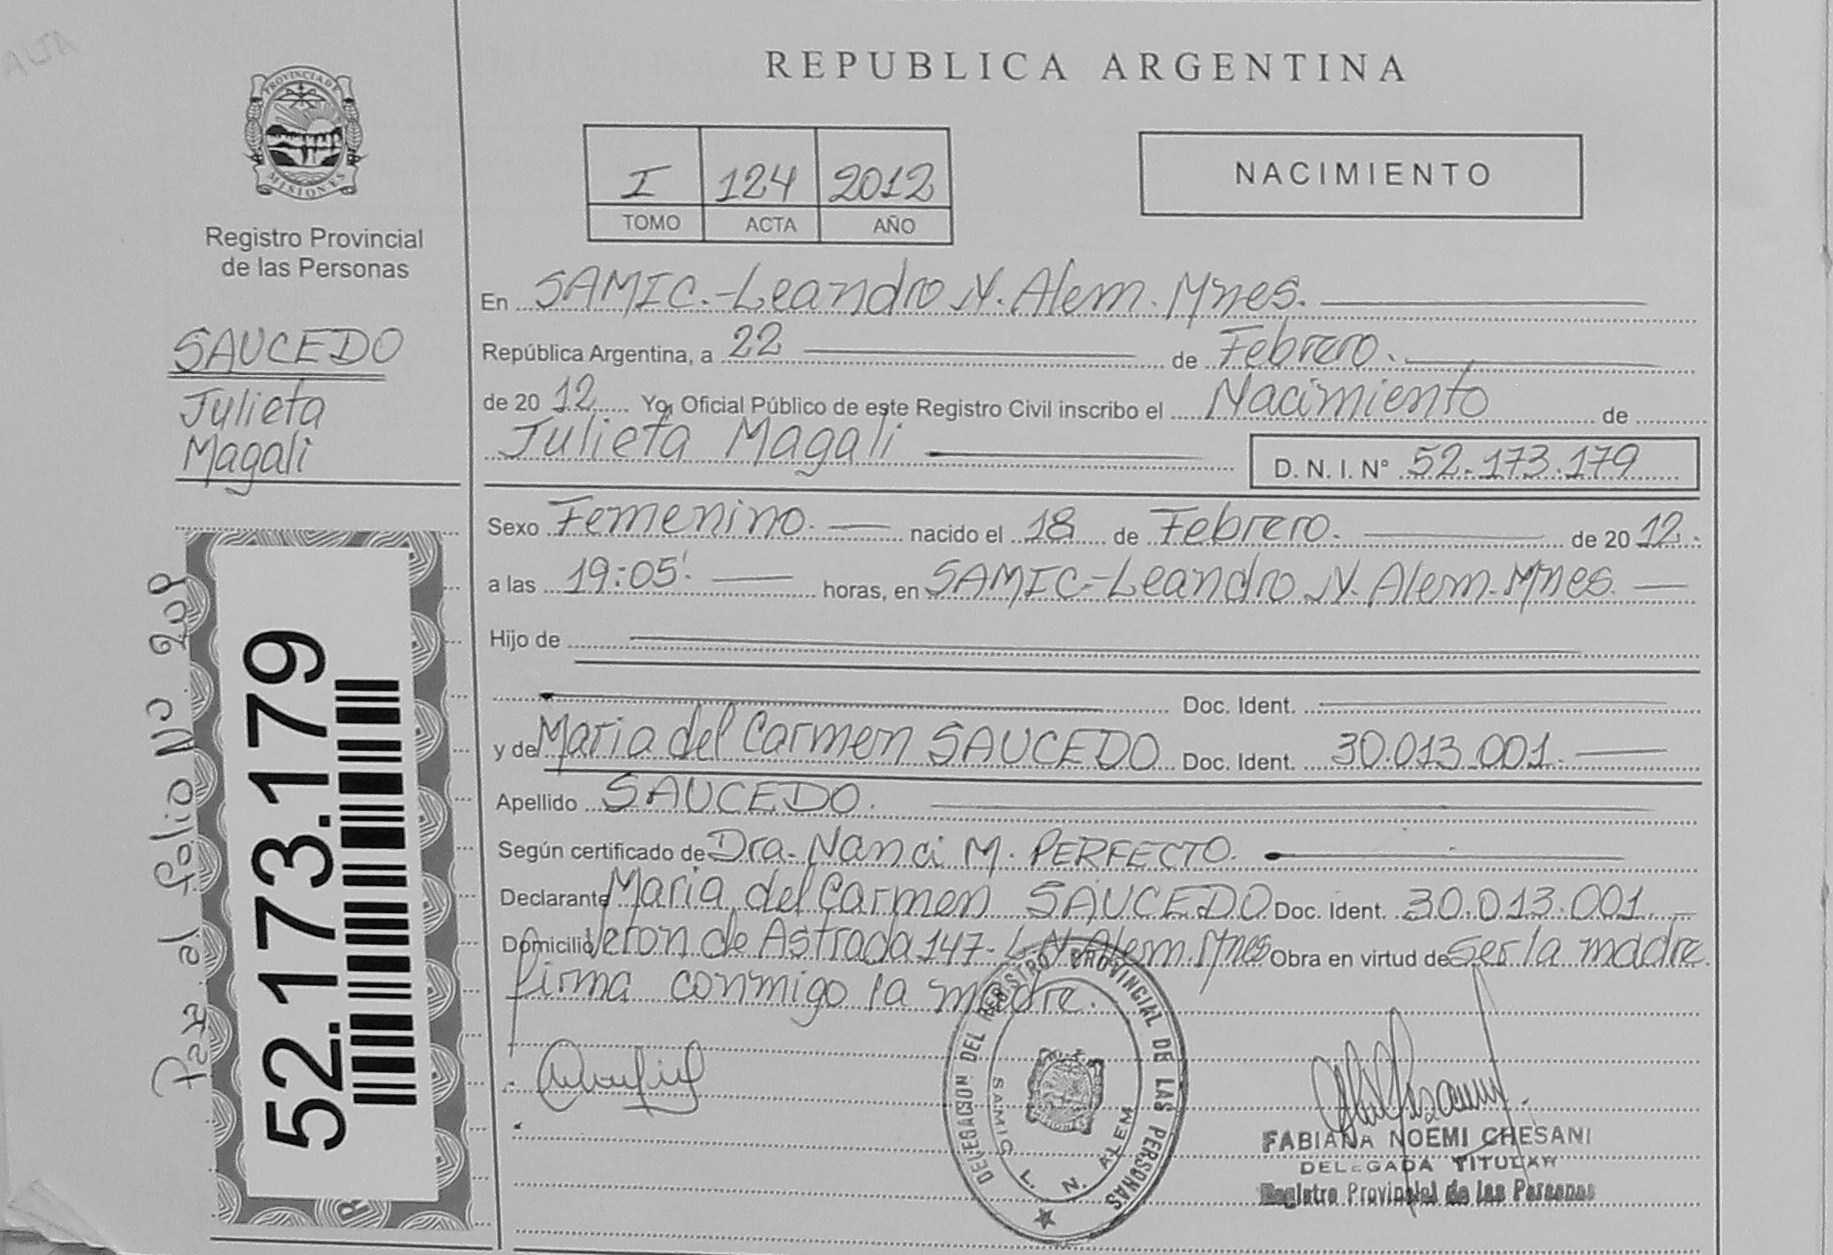 ALTA
REPUBLICA ARGENTINA
PROVINCIA DE
MISIONES
Registro Provincial
de las Personas
I 124 2012
TOMO ACTA AÑO
NACIMIENTO
SAUCEDO
Julieta
Magali
En SAMIC.-Leandro N. Alem. Mnes.
República Argentina, a 22 de Febrero.
de 20 12 Yo, Oficial Público de este Registro Civil inscribo el Nacimiento de
Julieta Magali
D. N. I. Nº 52.173.179
Sexo Femenino. nacido el 18 de Febrero. de 20 12.
a las 19:05'. horas, en SAMIC.-Leandro N. Alem. Mnes.
Hijo de
Doc. Ident.
y de Maria del Carmen SAUCEDO Doc. Ident. 30.013.001.
Apellido SAUCEDO.
Según certificado de Dra. Nanci M. PERFECTO.
Declarante Maria del Carmen SAUCEDO Doc. Ident. 30.013.001.
Domicilio Veron de Astrada 147- L.N. Alem. Mnes Obra en virtud de ser la madre.
firma conmigo la madre.
Pasa al folio Nº 208
52.173.179
DELEGACION DEL REGISTRO PROVINCIAL DE LAS PERSONAS
SAMIC L. N. ALEM
FABIANA NOEMI CHESANI
DELEGADA TITULAR
Registro Provincial de las Personas